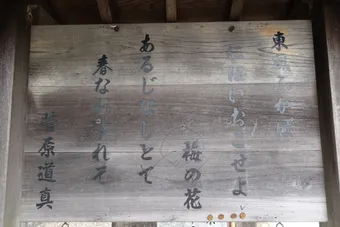 東風ふかば
にほいおこせよ
梅の花
あるじなしとて
春なわすれそ
菅原道真